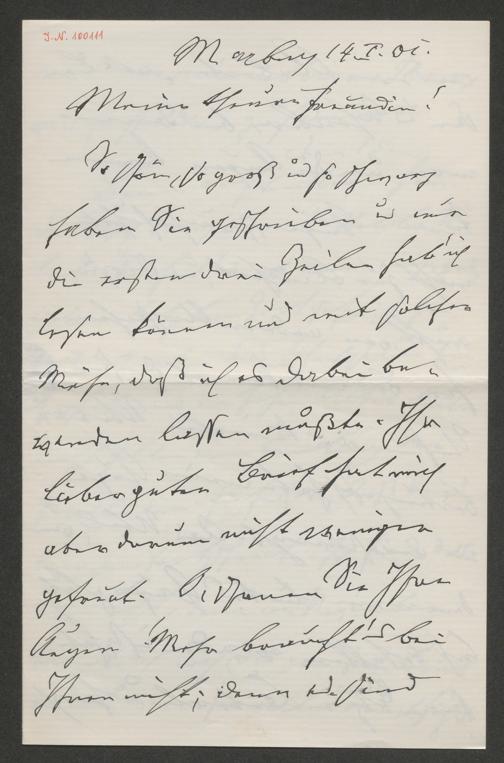 J.N. 100111
Marburg 14.I.01.
Meine theure Freundin!
So schön, so groß und so schwarz
haben Sie geschrieben u nur
die ersten drei Zeilen hab' ich
lesen können und mit solcher
Mühe, daß ich es dabei be-
wenden lassen mußte. Ihr
lieber guter Brief hat mich
aber darum nicht weniger
gefreut. O, schonen Sie Ihre
Augen! Mehr braucht's bei
Ihnen nicht; denn sind